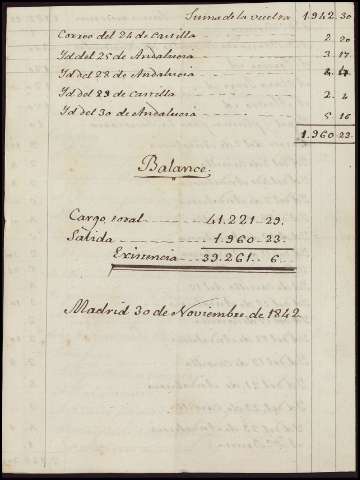 Suma de la vuelta 1942. 30
Correo del 24 de Castilla 2. 20
Yd del 25 de Andalucia 3. 17
Yd del 28 de Andalucia 4
Yd del 29 de Castilla 2. 4
Yd del 30 de Andalucia 5. 16
1.960. 23.
Balance.
Cargo total 41.221 - 29.
Salida 1.960 - 23.
Existencia 39.261. 6.
Madrid 30 de Noviembre de 1842